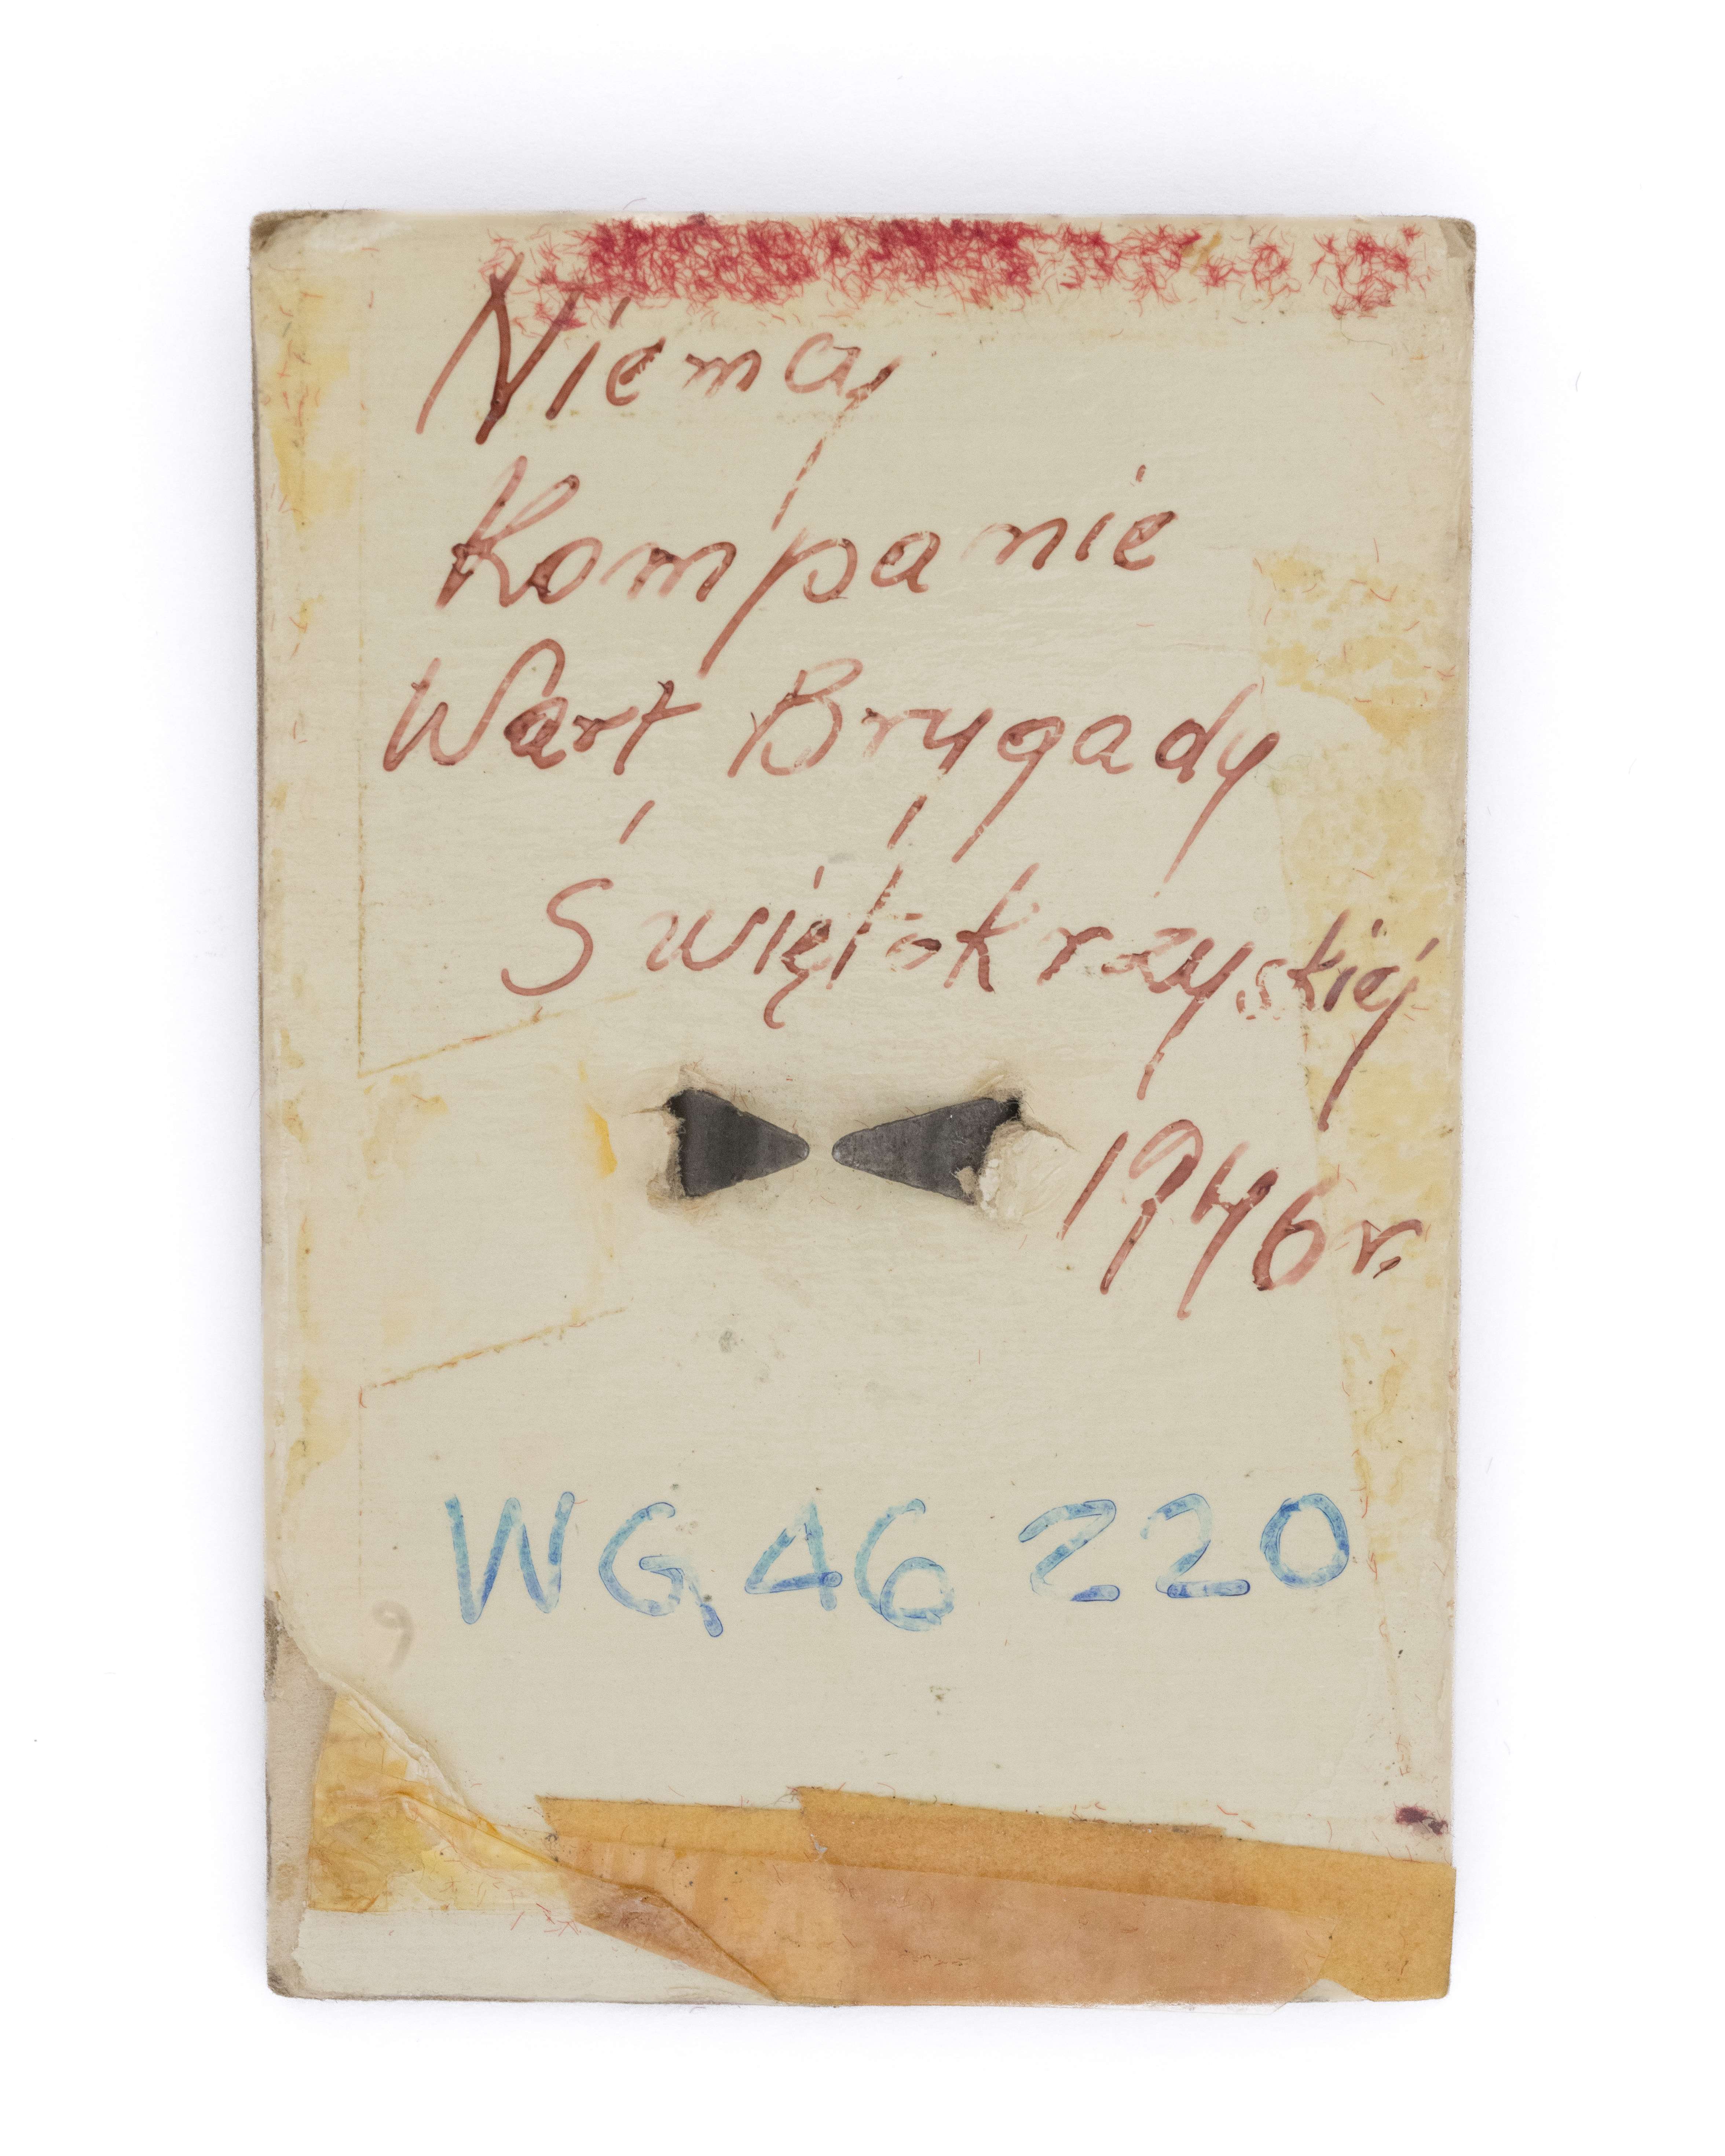 Niemcy
Kompanie
Wart Brygady
Świętokrzyskiej
1946 r.
WG 46 220
9